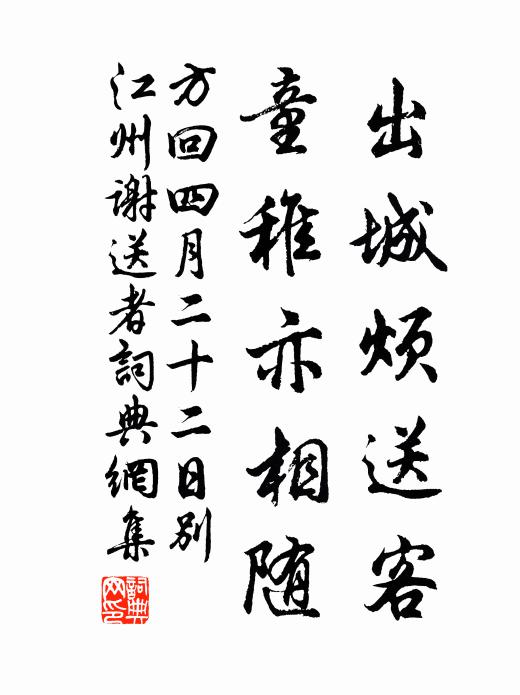 出城烦送客
童稚亦相随
方回四月二十二日别
江州谢送者詞典網集
詞典網印